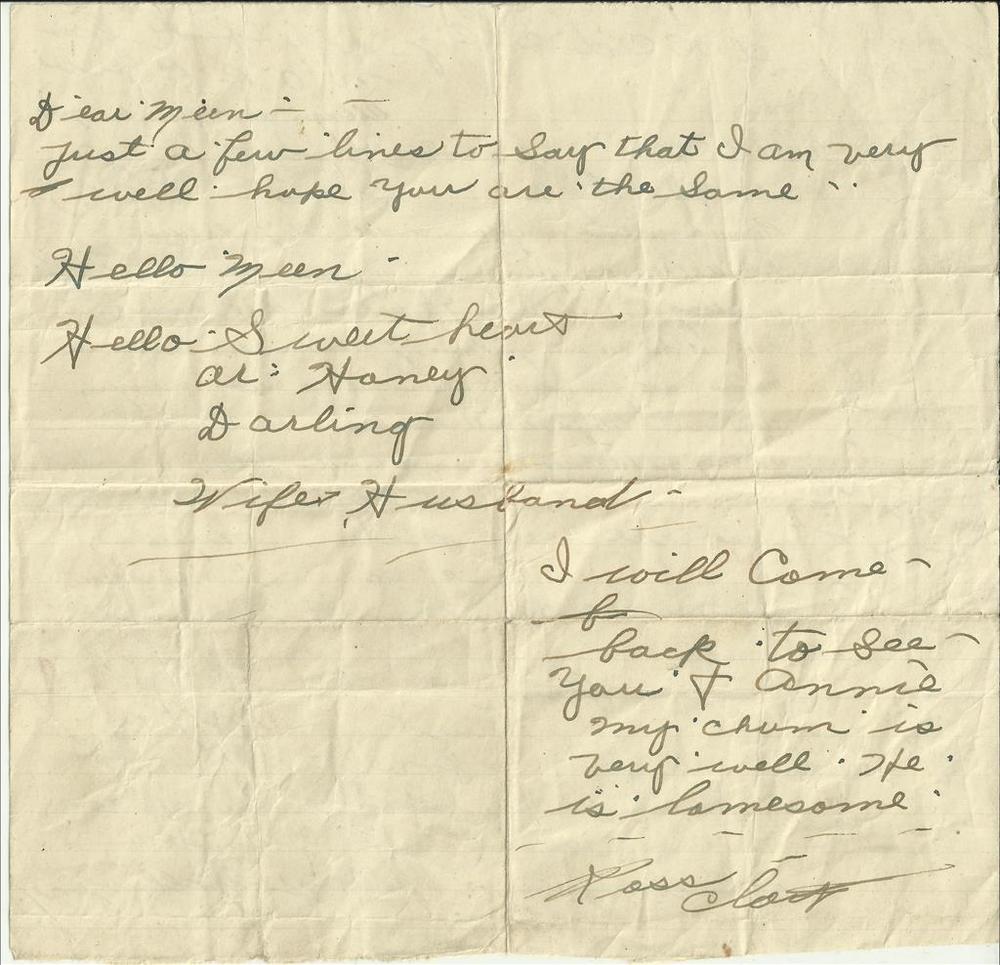 Dear Meen -
just a few lines to say that I am very
well hope you are the same
Hello Meen -
Hello Sweet heart
or: Honey
Darling
Wife & Husband -
I will Come -
b
back to see
you & Annie
my chum is
very well. He
is lomesome.
Ross